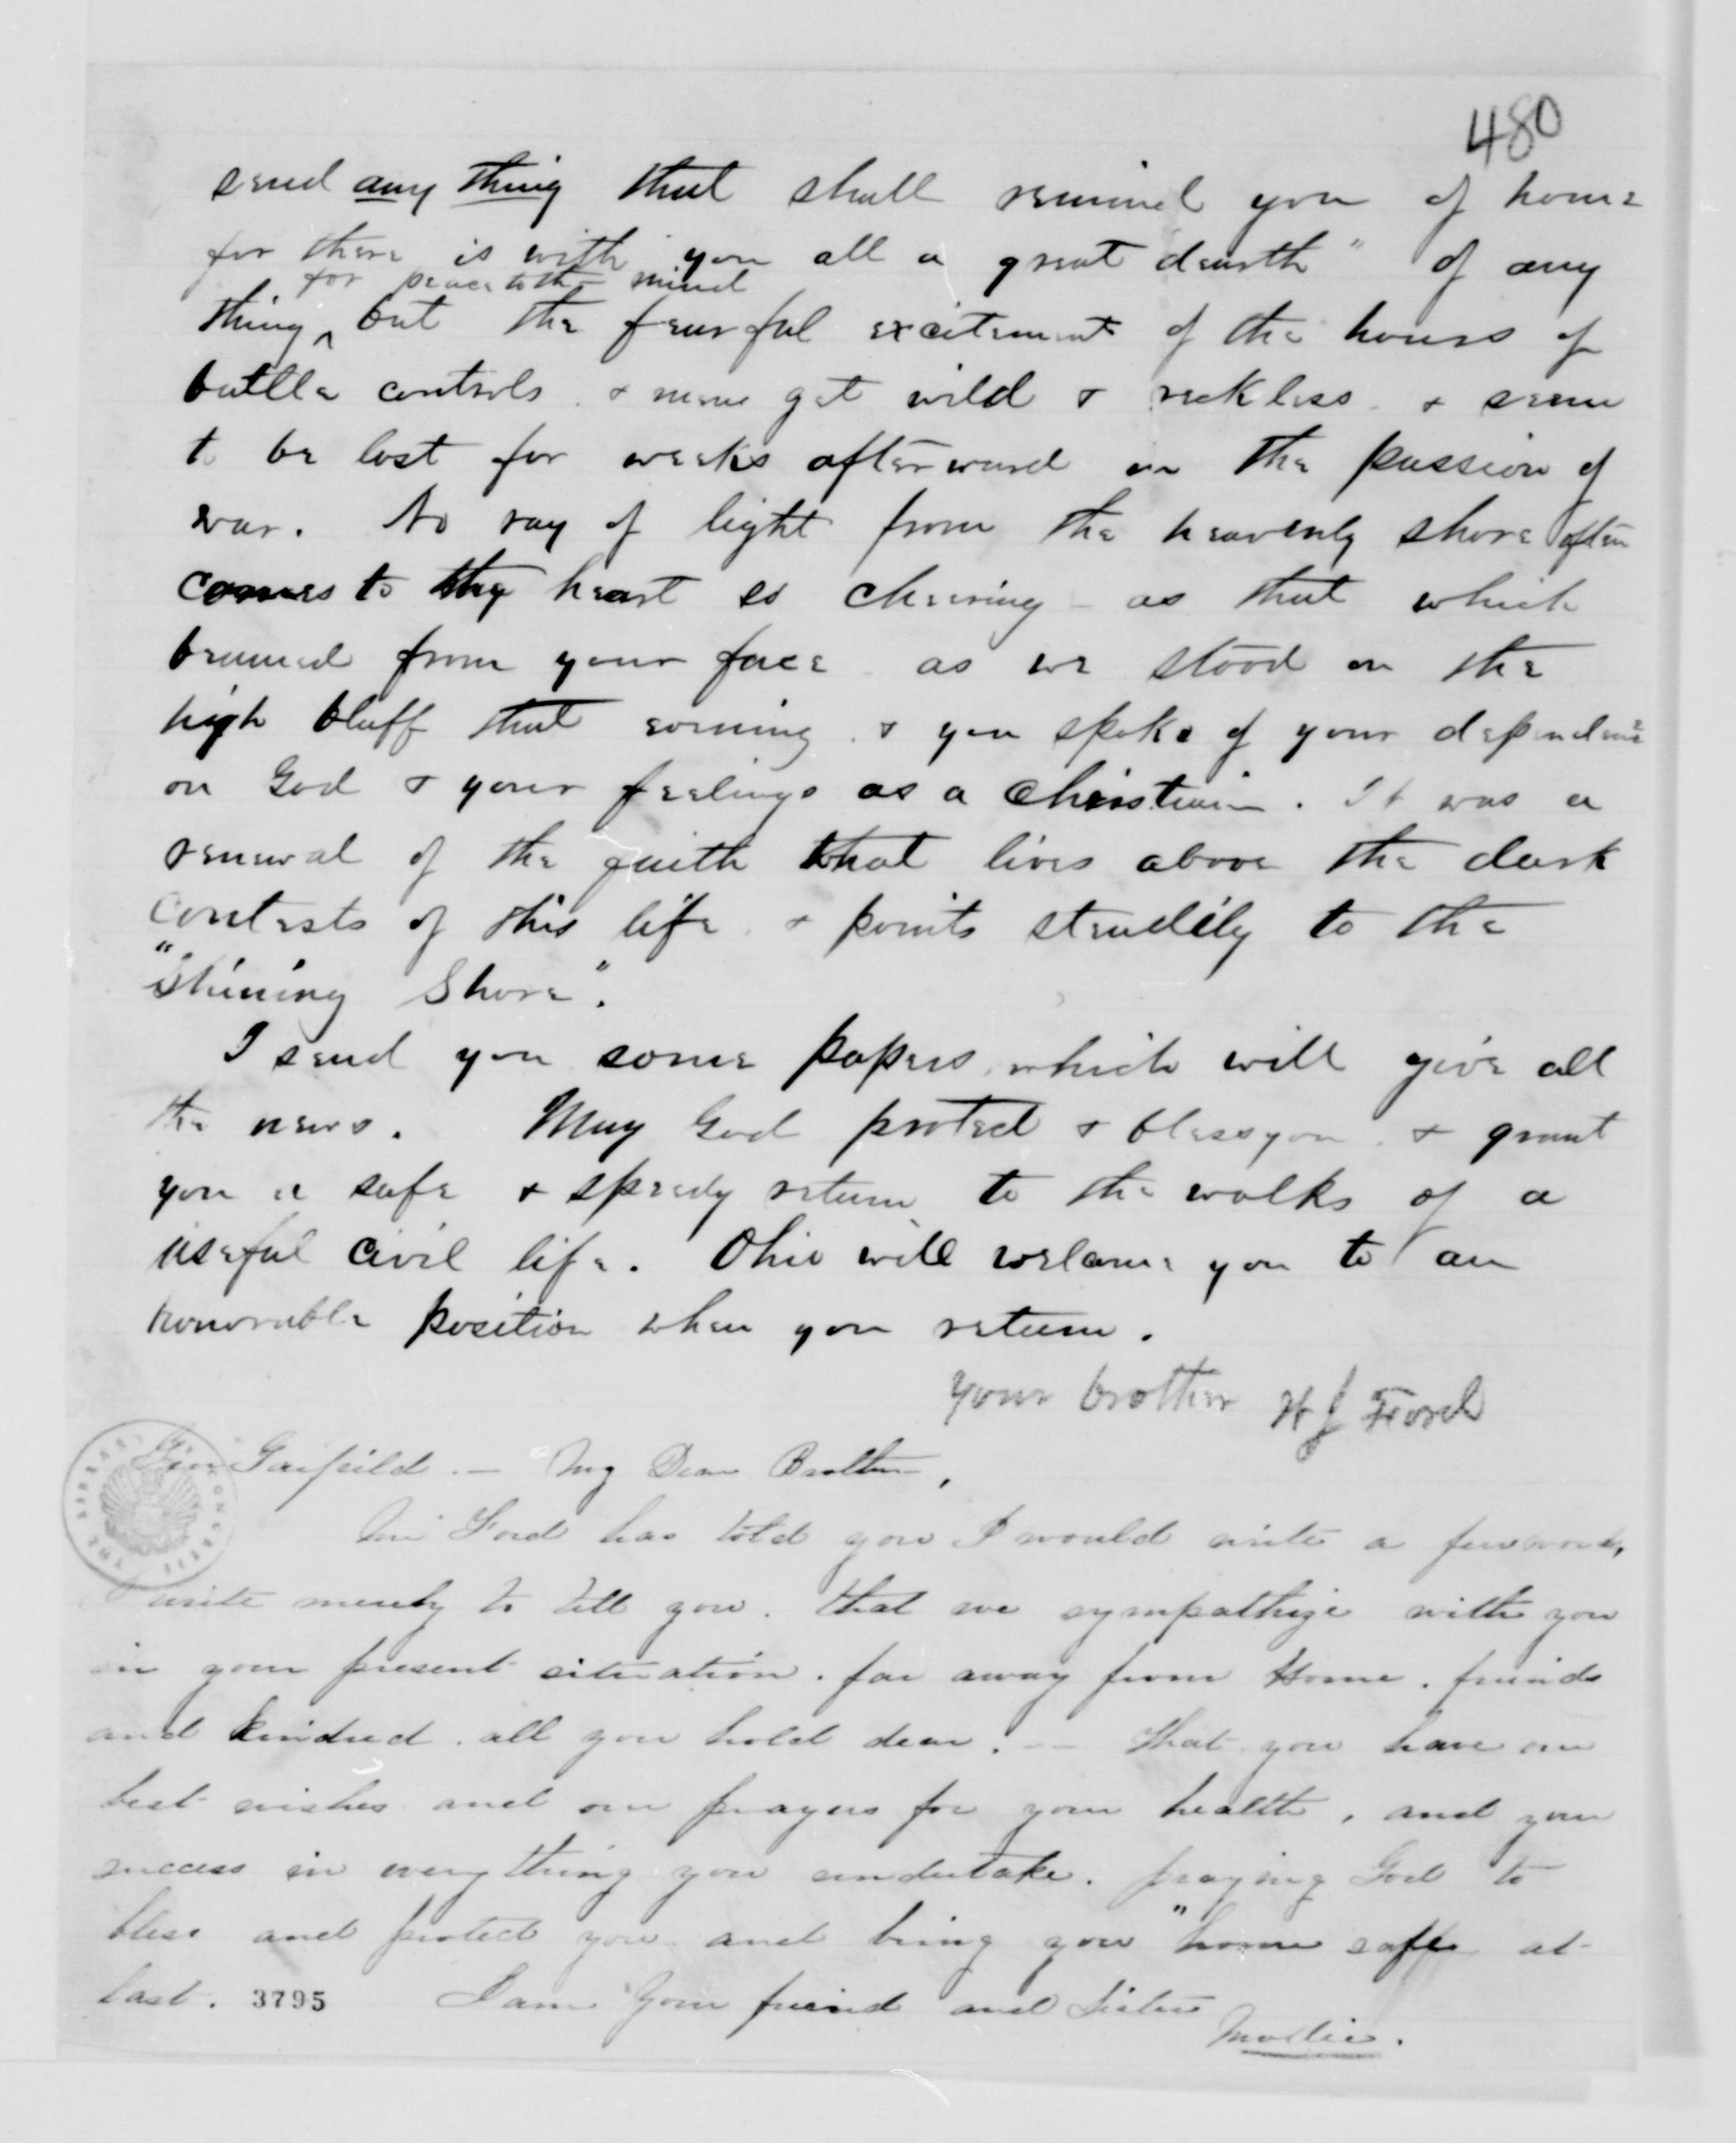 480
send any thing that shall remind you of home
for there is with you all a great dearth" of any
for peace to the mind
thing ^ but the fearful excitement of the hours of
battle controls & men get wild & reckless & seem
to be lost for weeks afterward in the passion of
war. No ray of light from the heavenly shore often
comes to my heart so cheering - as that which
beamed from your face as we stood on the
high bluff that evening & you spoke of your dependence
on God & your feelings as a Christian. It was a
renewal of the faith that lives above the dark
contests of this life & points steadily to the
"Shining Shore".
I send you some papers which will give all
the news. May God protect & bless you & grant
you a safe & speedy return to the walks of a
useful civil life. Ohio will welcome you to an
honorable position when you return.
Your brother H J Ford
Gen Garfield. — My Dear Brother,
Mr Ford has told you I would write a few words,
I write merely to tell you. that we sympathize with you
in your present situation. far away from Home. friends
and kindred. all you hold dear. — that you have our
best wishes and our prayers for your health, and your
success in every thing you undertake. praying God to
bless and protect you and bring you "home safe at
last. 3795 I am Your friend and Sister
Mollie.
THE LIBRARY OF CONGRESS